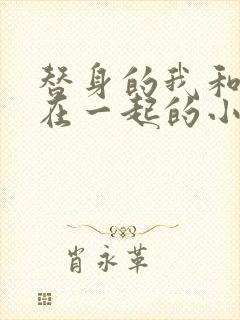 替身的我和
在一起的小
肖永革